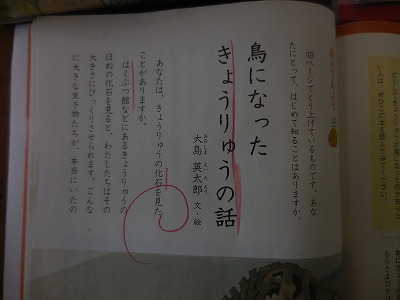 ㊲ページでとり上げているものです。あな
たにとって、はじめて知ることはありますか。
鳥になった
きょうりゅうの話
大島 英太郎 文・絵
おおしま えいたろう
あなたは、きょうりゅうの化石を見た
ことがありますか。
はくぶつ館などにあるきょうりゅうの
ほねの化石を見ると、わたしたちはその
大きさにびっくりさせられます。こんな
に大きな生き物たちが、本当にいたの
い人は、ぜひこの本を読んでみてください。